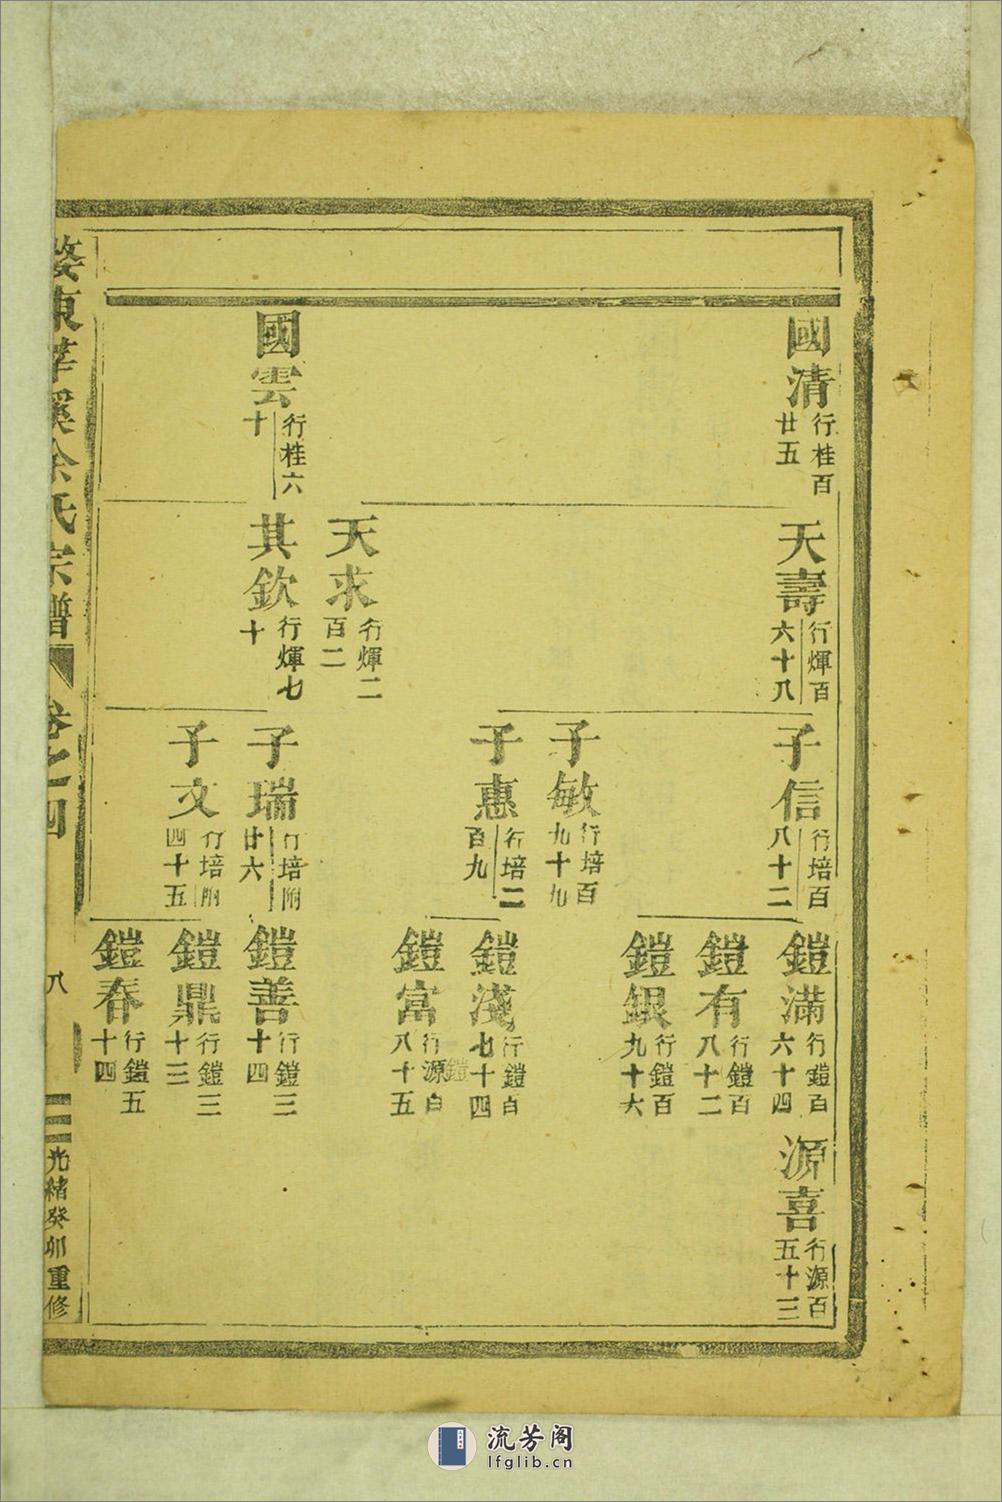 國清 行桂百廿五
天壽 行煇百六十八
子信 行培百八十二
鎧滿 行鎧百六十四
源喜 行源百五十三
鎧有 行鎧百八十二
鎧銀 行鎧百九十六
子敏 行培百九十九
子惠 行培二百九
鎧淺 行鎧百七十四
鎧富 行源百八十五
鎧
天求 行煇二百二
國雲 行桂六十
其欽 行煇七十
子瑞 行培附廿六
鎧善 行鎧三十四
子文 行培附四十五
鎧鼎 行鎧三十三
鎧春 行鎧五十四
婺東莘溪余氏宗譜 卷之四 八 光緒癸卯重修
流芳阁
lfglib.cn